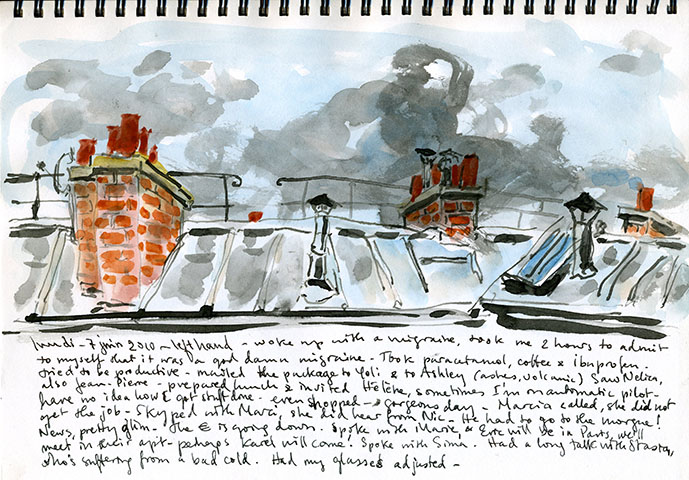 lundi - 7 juin 2010 - left hand - woke up with a migraine, took me 2 hours to admit
to myself that it was a god damn migraine - Took paracetamol, coffee & ibuprofen.
Tried to be productive - mailed the package to Yoli & to Ashley (ashes, volcanic) Saw
also Jean-Pierre - prepared lunch & invited Hélène, sometimes I'm on automatic pilot -
have no idea how I get stuff done - even shopped - gorgeous day - Marcia called, she did not
get the job - Skyped with Marci, she did hear from Nic - He had to go to the morgue!
News, pretty glim. The € is going down. Spoke with Marie, & Eric will be in Paris, we'll
meet in their apt - perhaps Karel will come! Spoke with Sima. Had a long talk with
who's suffering from a bad cold. Had my glasses adjusted -